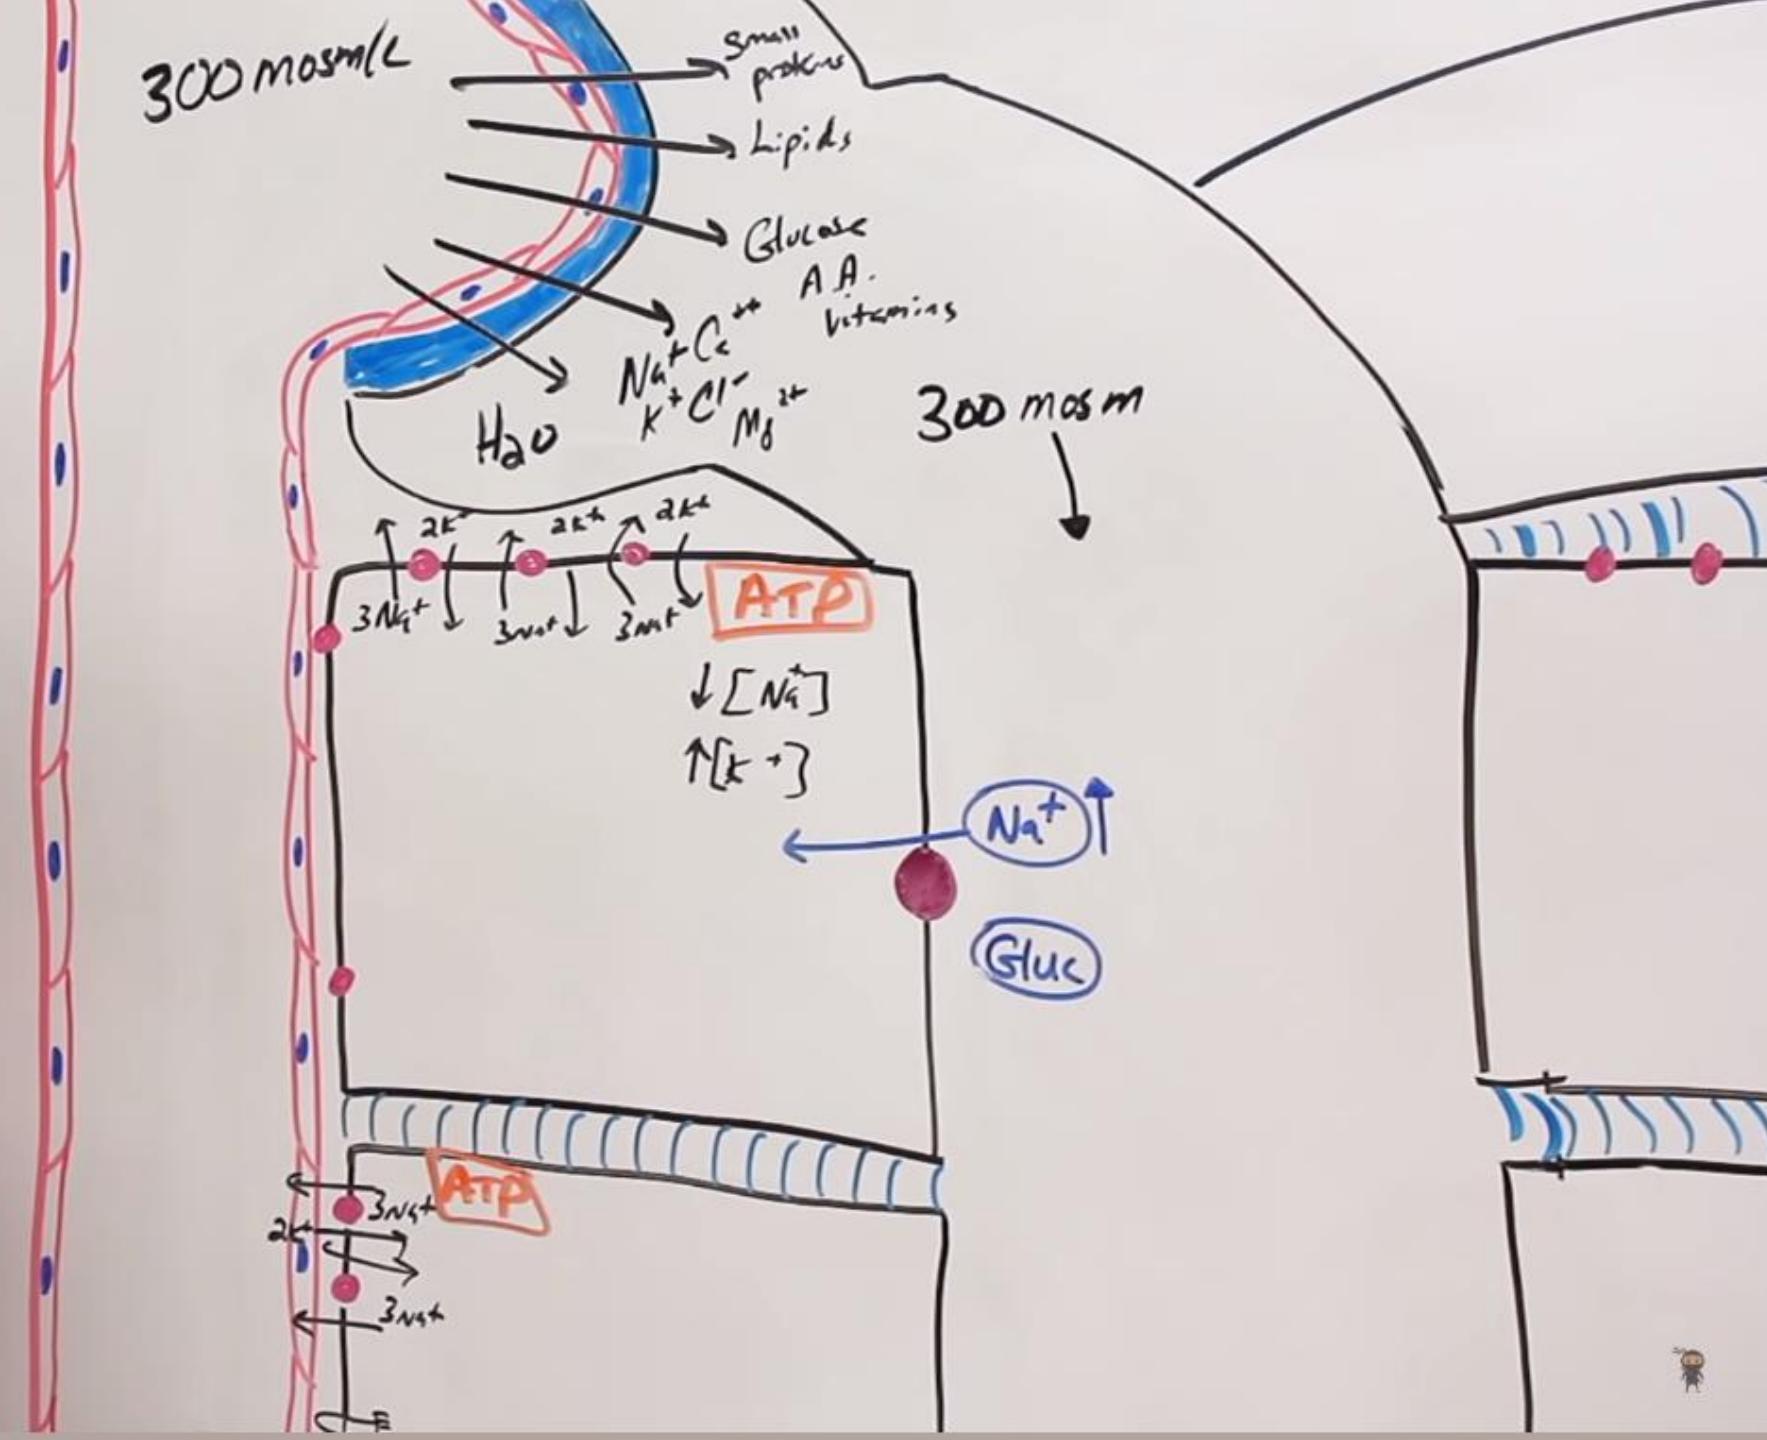 300 mosm/L
Small
proteins
Lipids
Glucose
A.A.
Vitamins
Na+ Ca++
K+ Cl- Mg2+
H2O
300 mosm
2K+ 2K+ 2K+
3Na+ 3Na+ 3Na+
ATP
↓[Na+]
↑[K+]
Na+ ↑
Gluc
ATP
3Na+
2K+
3Na+